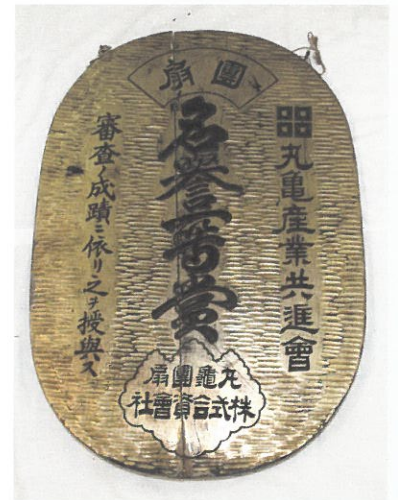 團扇
丸亀産業共進會
名譽一等賞
審査ノ成蹟ニ依リ之ヲ授與ス
丸龜團扇
株式合資會社